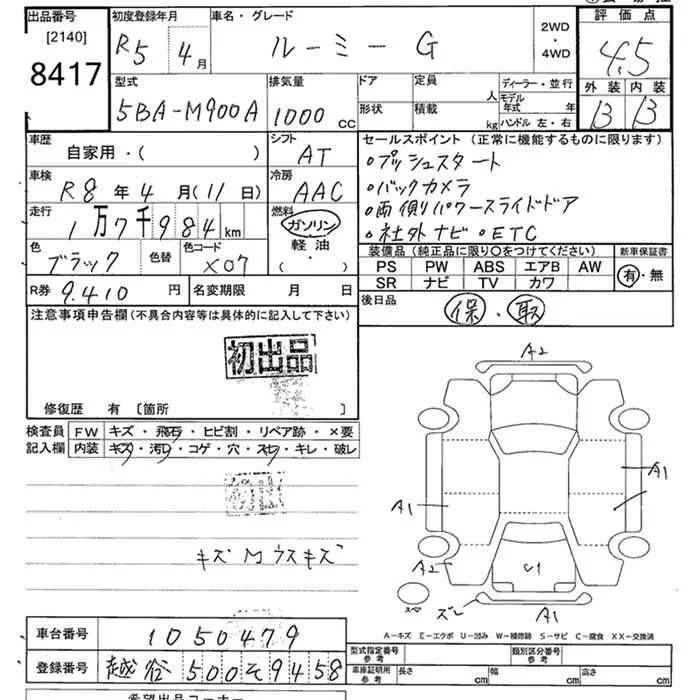 出品番号 初度登録年月 車名・グレード 2WD 評価点
[2140] R5 4月 ルーミー G ・4WD 4,5
8417 型式 排気量 ドア 定員 人 ディーラー・並行 外装 内装
5BA-M900A 1000 cc 形状 積載 kg モデル年式 年 B B
ハンドル 左・右
車歴 自家用・( ) シフト AT セールスポイント (正常に機能するものに限ります)
車検 R8年4月(11日) 冷房 AAC ・プッシュスタート
・バックカメラ
走行 1万7千984km 燃料 ガソリン ・両側パワースライドドア
軽油 ・社外ナビ ・ETC
色 ブラック 色替 色コード X07 ( ・ ) 装備品(純正品に限り○をつけてください) 新車保証書
PS PW ABS エアB AW 有・無
SR ナビ TV カワ
R券 9.410円 名変期限 月 日 後日品 保・取
注意事項申告欄(不具合内容等は具体的に記入して下さい)
初出品
修復歴 有 〔箇所 〕
検査員 FW キズ・飛石・ヒビ割・リペア跡・×要
記入欄 内装 キズ・汚れ・コゲ・穴・スレ・キレ・破レ
A2
A1
A1
A2
U1
キズ M ウスキズ
ズレ A1
A-キズ E-エクボ U-凹み W-補修跡 S-サビ C-腐食 XX-交換済
車台番号 1050479
型式指定番号 参考 類別区分番号 参考
登録番号 越谷 500 そ 9458 車庫証明用 参考 長さ cm 幅 cm 高さ cm
希望出品コーナー